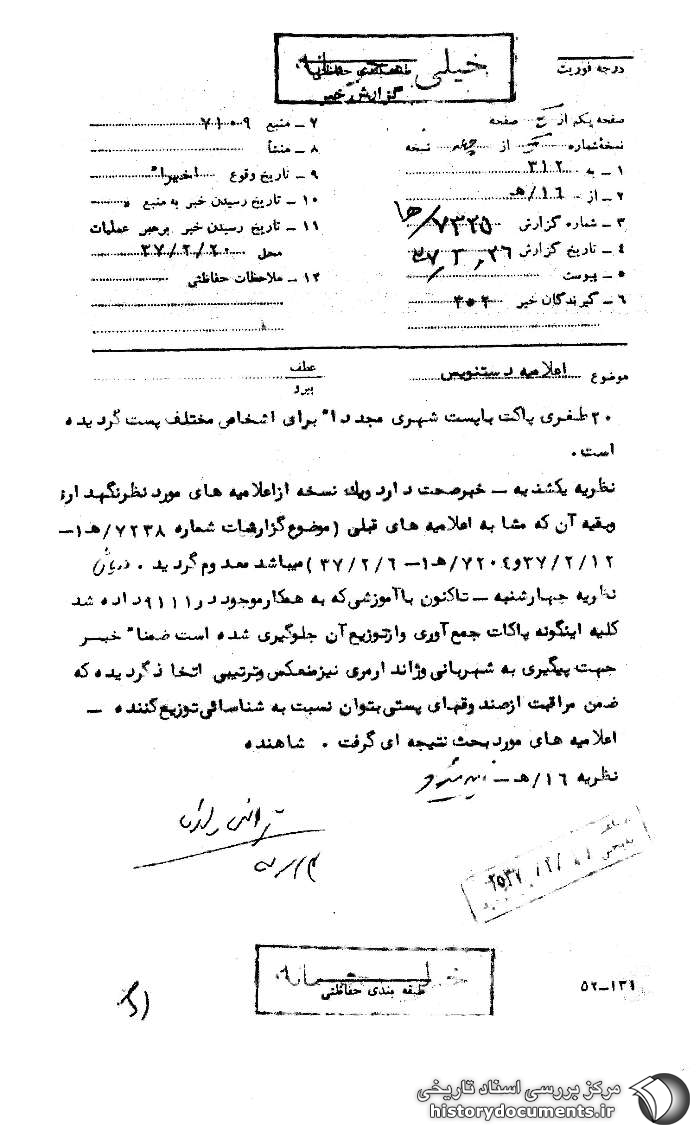 خیلی محرمانه
طبقه‌بندی حفاظتی
گزارش خبر
درجه فوریت
صفحه یکم از صفحه
نسخه شماره از نسخه
۱ – به ۳۱۲
۲ – از ۱۶/هـ
۳ – شماره گزارش ۷۳۲۵/
۴ – تاریخ گزارش
۵ – پیوست
۶ – گیرندگان خبر
۷ – منبع ۷۱۰۹
۸ – منشأ
۹ – تاریخ وقوع اخیراً
۱۰ – تاریخ رسیدن خبر به منبع
۱۱ – تاریخ رسیدن خبر برهبر عملیات
محل ۳۷/۲/۲۰
۱۲ – ملاحظات حفاظتی
موضوع اعلامیه دستنویس
عطف
پیرو
۲۰ طغری پاکت با پست شهری مجدداً برای اشخاص مختلف پست گردیده
است.
نظریه یکشنبه – خبر صحت دارد ویک نسخه از اعلامیه های مورد نظر نگهداری
وبقیه آن که مشابه اعلامیه های قبلی (موضوع گزارشات شماره ۷۲۳۸/هـ۱–
۳۷/۲/۱۲ و۷۲۰۴/هـ۱– ۳۷/۲/۶) میباشد معدوم گردید.
نظریه چهارشنبه – تاکنون با آموزشی که به همکار موجود در ۹۱۱۱ داده شد
کلیه اینگونه پاکات جمع آوری واز توزیع آن جلوگیری شده است ضمناً خبر
جهت پیگیری به شهربانی وژاندارمری نیز منعکس وترتیبی اتخاذ گردیده که
ضمن مراقبت از صندوقهای پستی بتوان نسبت به شناسائی توزیع کننده –
اعلامیه های مورد بحث نتیجه ای گرفت. شاهنده
نظریه ۱۶/هـ –
خیلی محرمانه
طبقه بندی حفاظتی
۵۲–۱۳۴
مرکز بررسی اسناد تاریخی
historydocuments.ir